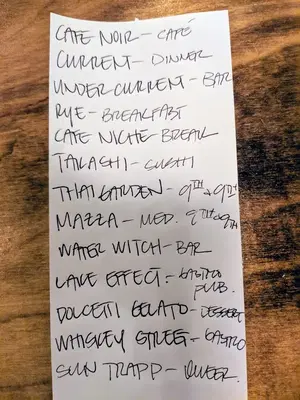 CAFE NOIR - CAFÉ
CURRENT - DINNER
UNDER CURRENT - BAR
RYE - BREAKFAST
CAFE NICHE - BREAK
TAKASHI - SUSHI
THAI GARDEN - 9TH + 9TH
MAZZA - MED. 9TH + 9TH
WATER WITCH - BAR
LAKE EFFECT - GASTRO
PUB.
DOLCETTI GELATO - DESSERT
WHISKEY STREET - GASTRO
SUN TRAPP - QUEER.